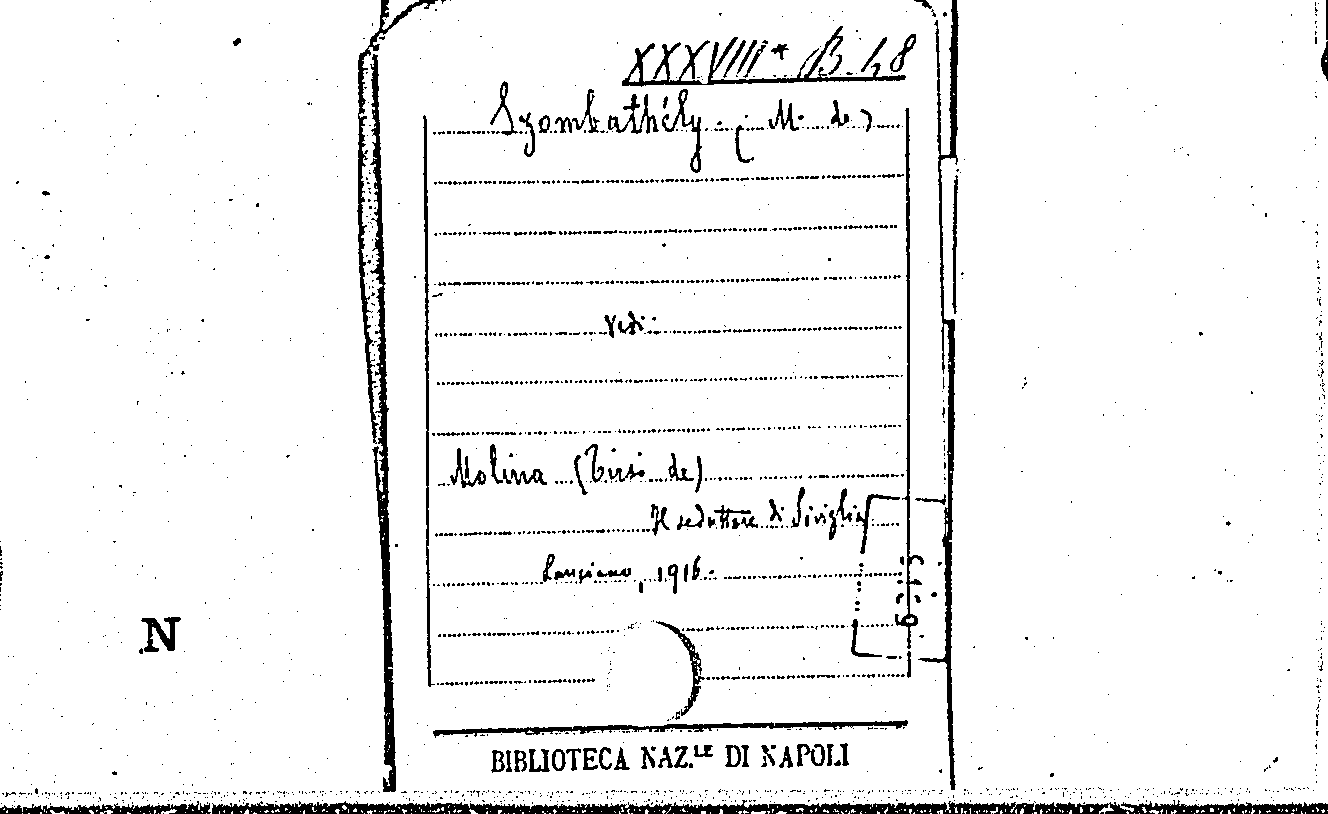 XXXVIII* B. 48
Szombathély. (M. de)
Vedi:
Molina (Tirso de)
Il seduttore di Siviglia
Lanciano, 1916.
N
BIBLIOTECA NAZ.LE DI NAPOLI